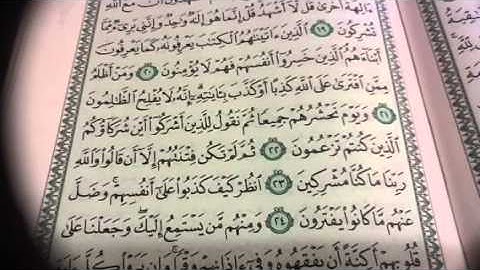 ءَالِهَةً أُخْرَىٰ قُل لَّآ أَشْهَدُ قُلْ إِنَّمَا هُوَ إِلَٰهٌ وَٰحِدٌ وَإِنَّنِى بَرِىٓءٌ مِّمَّا
تُشْرِكُونَ ١٩ ٱلَّذِينَ ءَاتَيْنَٰهُمُ ٱلْكِتَٰبَ يَعْرِفُونَهُۥ كَمَا يَعْرِفُونَ
أَبْنَآءَهُمُ ٱلَّذِينَ خَسِرُوٓا۟ أَنفُسَهُمْ فَهُمْ لَا يُؤْمِنُونَ ٢٠ وَمَنْ أَظْلَمُ
مِمَّنِ ٱفْتَرَىٰ عَلَى ٱللَّهِ كَذِبًا أَوْ كَذَّبَ بِـَٔايَٰتِهِۦٓ إِنَّهُۥ لَا يُفْلِحُ ٱلظَّٰلِمُونَ
٢١ وَيَوْمَ نَحْشُرُهُمْ جَمِيعًا ثُمَّ نَقُولُ لِلَّذِينَ أَشْرَكُوٓا۟ أَيْنَ شُرَكَآؤُكُمُ
ٱلَّذِينَ كُنتُمْ تَزْعُمُونَ ٢٢ ثُمَّ لَمْ تَكُن فِتْنَتُهُمْ إِلَّآ أَن قَالُوا۟ وَٱللَّهِ
رَبِّنَا مَا كُنَّا مُشْرِكِينَ ٢٣ ٱنظُرْ كَيْفَ كَذَبُوا۟ عَلَىٰٓ أَنفُسِهِمْ وَضَلَّ
عَنْهُم مَّا كَانُوا۟ يَفْتَرُونَ ٢٤ وَمِنْهُم مَّن يَسْتَمِعُ إِلَيْكَ وَجَعَلْنَا عَلَىٰ
قُلُوبِهِمْ أَكِنَّةً أَن يَفْقَهُوهُ وَفِىٓ ءَاذَانِهِمْ وَقْرًا وَإِن يَرَوْا۟ كُلَّ